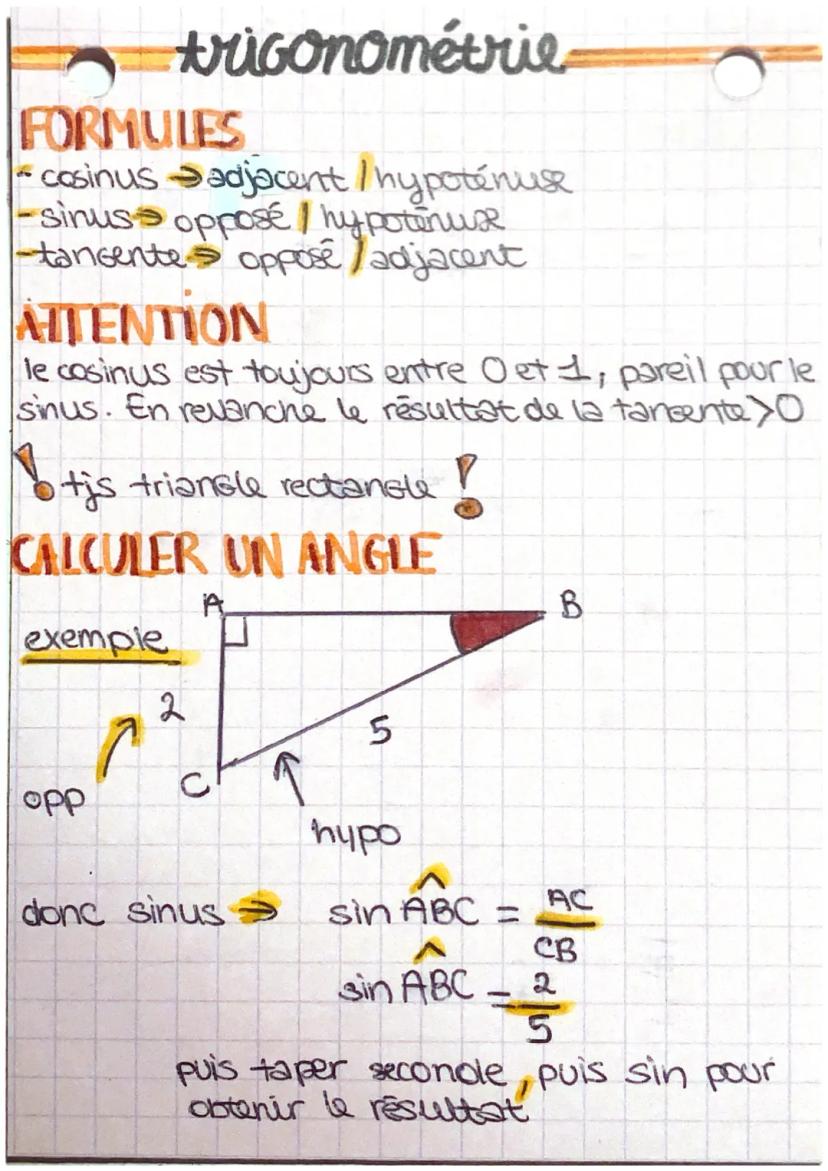 trigonométrie
FORMULES
- cosinus → adjacent / hypoténuse
- sinus → opposé / hypoténuse
- tangente → opposé / adjacent
ATTENTION
le cosinus est toujours entre 0 et 1, pareil pour le
sinus. En revanche le résultat de la tangente > 0
! tjs triangle rectangle !
CALCULER UN ANGLE
exemple
A
B
2
5
C
opp
hypo
donc sinus → sin ÂBC = AC
CB
sin ÂBC = 2
5
puis taper seconde, puis sin pour
obtenir le résultat